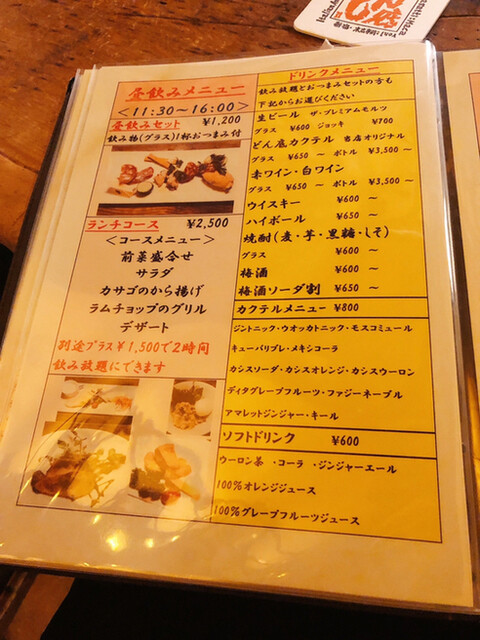 昼飲みメニュー
＜11:30～16:00＞
昼飲みセット ¥1,200
飲み物(グラス)1杯おつまみ付
ランチコース ¥2,500
＜コースメニュー＞
前菜盛合せ
サラダ
カサゴのから揚げ
ラムチョップのグリル
デザート
別途プラス¥1,500で2時間
飲み放題にできます
ドリンクメニュー
飲み放題とおつまみセットの方も
下記からお選びください
生ビール ザ・プレミアムモルツ
グラス ¥600 ジョッキ ¥700
どん底カクテル 当店オリジナル
グラス ¥650 ～ ボトル ¥3,500～
赤ワイン・白ワイン
グラス ¥650 ～ ボトル ¥3,500～
ウイスキー ¥600 ～
ハイボール ¥650 ～
焼酎(麦・芋・黒糖・しそ)
グラス ¥600 ～
梅酒 ¥600 ～
梅酒ソーダ割 ¥650 ～
カクテルメニュー ¥800
ジントニック・ウオッカトニック・モスコミュール
キューバリブレ・メキシコーラ
カシスソーダ・カシスオレンジ・カシスウーロン
ディタグレープフルーツ・ファジーネーブル
アマレットジンジャー・キール
ソフトドリンク ¥600
ウーロン茶 ・コーラ ・ジンジャーエール
100%オレンジジュース
100%グレープフルーツジュース